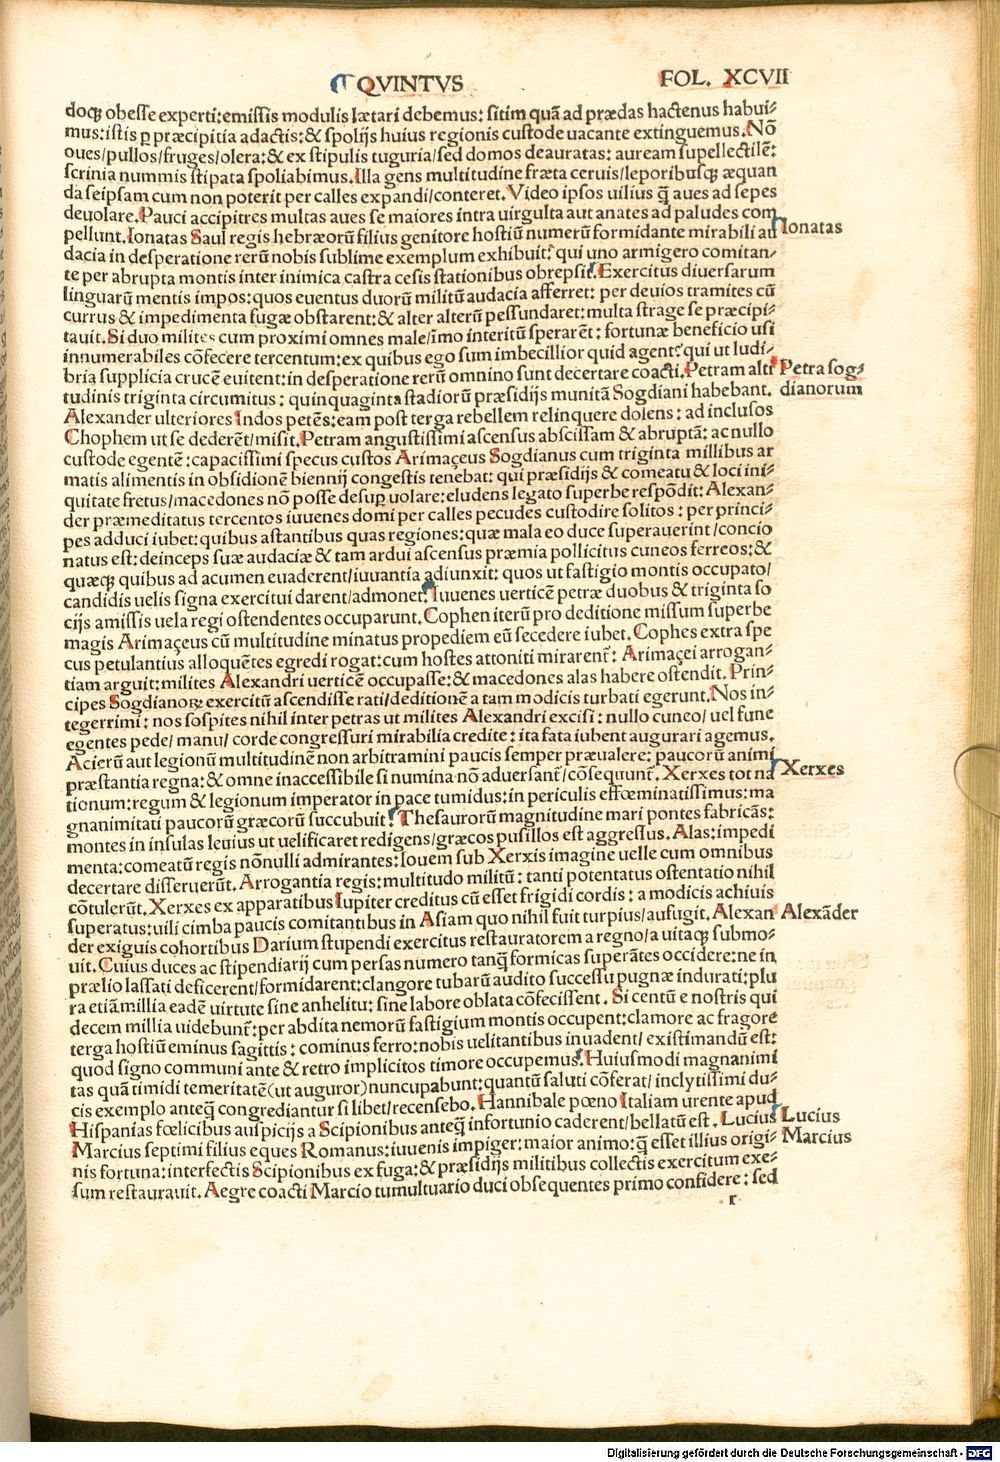 QVINTVS FOL. XCVII
doqꝫ obesse experti:emissis modulis lætari debemus: sitim quã ad prædas hactenus habui⸗
mus:istis ꝑ præcipitia adactis:& spolijs huius regionis custode uacante extinguemus.Nõ
oues/pullos/fruges/olera:& ex stipulis tuguria/sed domos deauratas: auream supellectilẽ:
scrinia nummis stipata spoliabimus.Illa gens multitudine fræta ceruis/leporibusqꝫ æquan
da seipsam cum non poterit per calles expandi/conteret.Video ipsos uilius q̃ aues ad sepes
deuolare.Pauci accipitres multas aues se maiores intra uirgulta aut anates ad paludes com
pellunt.Ionatas Saul regis hebræorũ filius genitore hostiũ numerũ formidante mirabili au
Ionatas
dacia in desperatione rerũ nobis sublime exemplum exhibuit: qui uno armigero comitan⸗
te per abrupta montis inter inimica castra cesis stationibus obrepsit.Exercitus diuersarum
linguarũ mentis impos:quos euentus duorũ militũ audacia afferret: per deuios tramites cũ
currus & impedimenta fugæ obstarent:& alter alterũ pessundaret:multa strage se præcipi⸗
tauit.Si duo milites cum proximi omnes male/ĩmo interitũ sperarẽt: fortunæ beneficio usi
innumerabiles cõfecere tercentum:ex quibus ego sum imbecillior quid agent?qui ut ludi⸗
bria supplicia crucẽ euitent:in desperatione rerũ omnino sunt decertare coacti.Petram alti
Petra sog⸗
dianorum
tudinis triginta circumitus: quinquaginta stadiorũ præsidijs munitã Sogdiani habebant.
Alexander ulteriores Indos petẽs:eam post terga rebellem relinquere dolens: ad inclusos
Chophem ut se dederẽt/misit.Petram angustissimi ascensus abscissam & abruptã: ac nullo
custode egentẽ:capacissimi specus custos Arimaçeus Sogdianus cum triginta millibus ar
matis alimentis in obsidionẽ biennij congestis tenebat: qui præsidijs & comeatu & loci ini⸗
quitate fretus/macedones nõ posse desuꝑ uolare:eludens legato superbe respõdit: Alexan⸗
der præmeditatus tercentos iuuenes domi per calles pecudes custodire solitos: per princi⸗
pes adduci iubet:quibus astantibus quas regiones:quæ mala eo duce superauerint/concio
natus est:deinceps suæ audaciæ & tam ardui ascensus præmia pollicitus cuneos ferreos:&
quæqꝫ quibus ad acumen euaderent/iuuantia adiunxit: quos ut fastigio montis occupato/
candidis uelis signa exercitui darent/admonet.Iuuenes uerticẽ petræ duobus & triginta so
cijs amissis uela regi ostendentes occuparunt.Cophen iterũ pro deditione missum superbe
magis Arimaçeus cũ multitudine minatus propediem eũ secedere iubet.Cophes extra spe
cus petulantius alloquẽtes egredi rogat:cum hostes attoniti mirarent᷑: Arimaçei arrogan⸗
tiam arguit:milites Alexandri uerticẽ occupasse:& macedones alas habere ostendit.Prin⸗
cipes Sogdianoꝝ exercitũ ascendisse rati/deditionẽ a tam modicis turbati egerunt.Nos in⸗
tegerrimi: nos sospites nihil inter petras ut milites Alexandri excisi: nullo cuneo/ uel fune
egentes pede/ manu/ corde congressuri mirabilia credite: ita fata iubent augurari agemus.
Acierũ aut legionũ multitudinẽ non arbitramini paucis semper præualere: paucorũ animi
præstantia regna:& omne inaccessibile si numina nõ aduersant᷑/cõsequunt᷑.Xerxes tot na
Xerxes
tionum:regum & legionum imperator in pace tumidus:in periculis effœminatissimus:ma
gnanimitati paucorũ græcorũ succubuit.Thesaurorũ magnitudine mari pontes fabricãs:
montes in insulas leuius ut uelificaret redigens/græcos pusillos est aggressus.Alas:impedi
menta:comeatũ regis nõnulli admirantes:Iouem sub Xerxis imagine uelle cum omnibus
decertare disseruerũt.Arrogantia regis:multitudo militũ: tanti potentatus ostentatio nihil
cõtulerũt.Xerxes ex apparatibus Iupiter creditus cũ esset frigidi cordis: a modicis achiuis
superatus:uili cimba paucis comitantibus in Asiam quo nihil fuit turpius/aufugit.Alexan
Alexãder
der exiguis cohortibus Darium stupendi exercitus restauratorem a regno/a uitaqꝫ submo⸗
uit.Cuius duces ac stipendiarij cum persas numero tanq̃ formicas superãtes occidere:ne in
prælio lassati deficerent/formidarent:clangore tubarũ audito successu pugnæ indurati:plu
ra etiã millia eadẽ uirtute sine anhelitu: sine labore oblata cõfecissent.Si centũ e nostris qui
decem millia uidebunt᷑:per abdita nemorũ fastigium montis occupent:clamore ac fragore
terga hostiũ eminus sagittis: cominus ferro:nobis uelitantibus inuadent/ existimandũ est:
quod signo communi ante & retro implicitos timore occupemus.Huiusmodi magnanimi
tas quã timidi temeritatẽ(ut auguror)nuncupabunt:quantũ saluti cõferat/ inclytissimi du⸗
cis exemplo anteq̃ congrediantur si libet/recensebo.Hannibale pœno Italiam urente apud
Hispanias fœlicibus auspicijs a Scipionibus anteq̃ infortunio caderent/bellatũ est.Lucius
Lucius
Marcius
Marcius septimi filius eques Romanus:iuuenis impiger:maior animo:q̃ esset illius origi⸗
nis fortuna:interfectis Scipionibus ex fuga:& præsidijs militibus collectis exercitum exe⸗
sum restaurauit.Aegre coacti Marcio tumultuario duci obsequentes primo confidere: sed
r
Digitalisierung gefördert durch die Deutsche Forschungsgemeinschaft - DFG